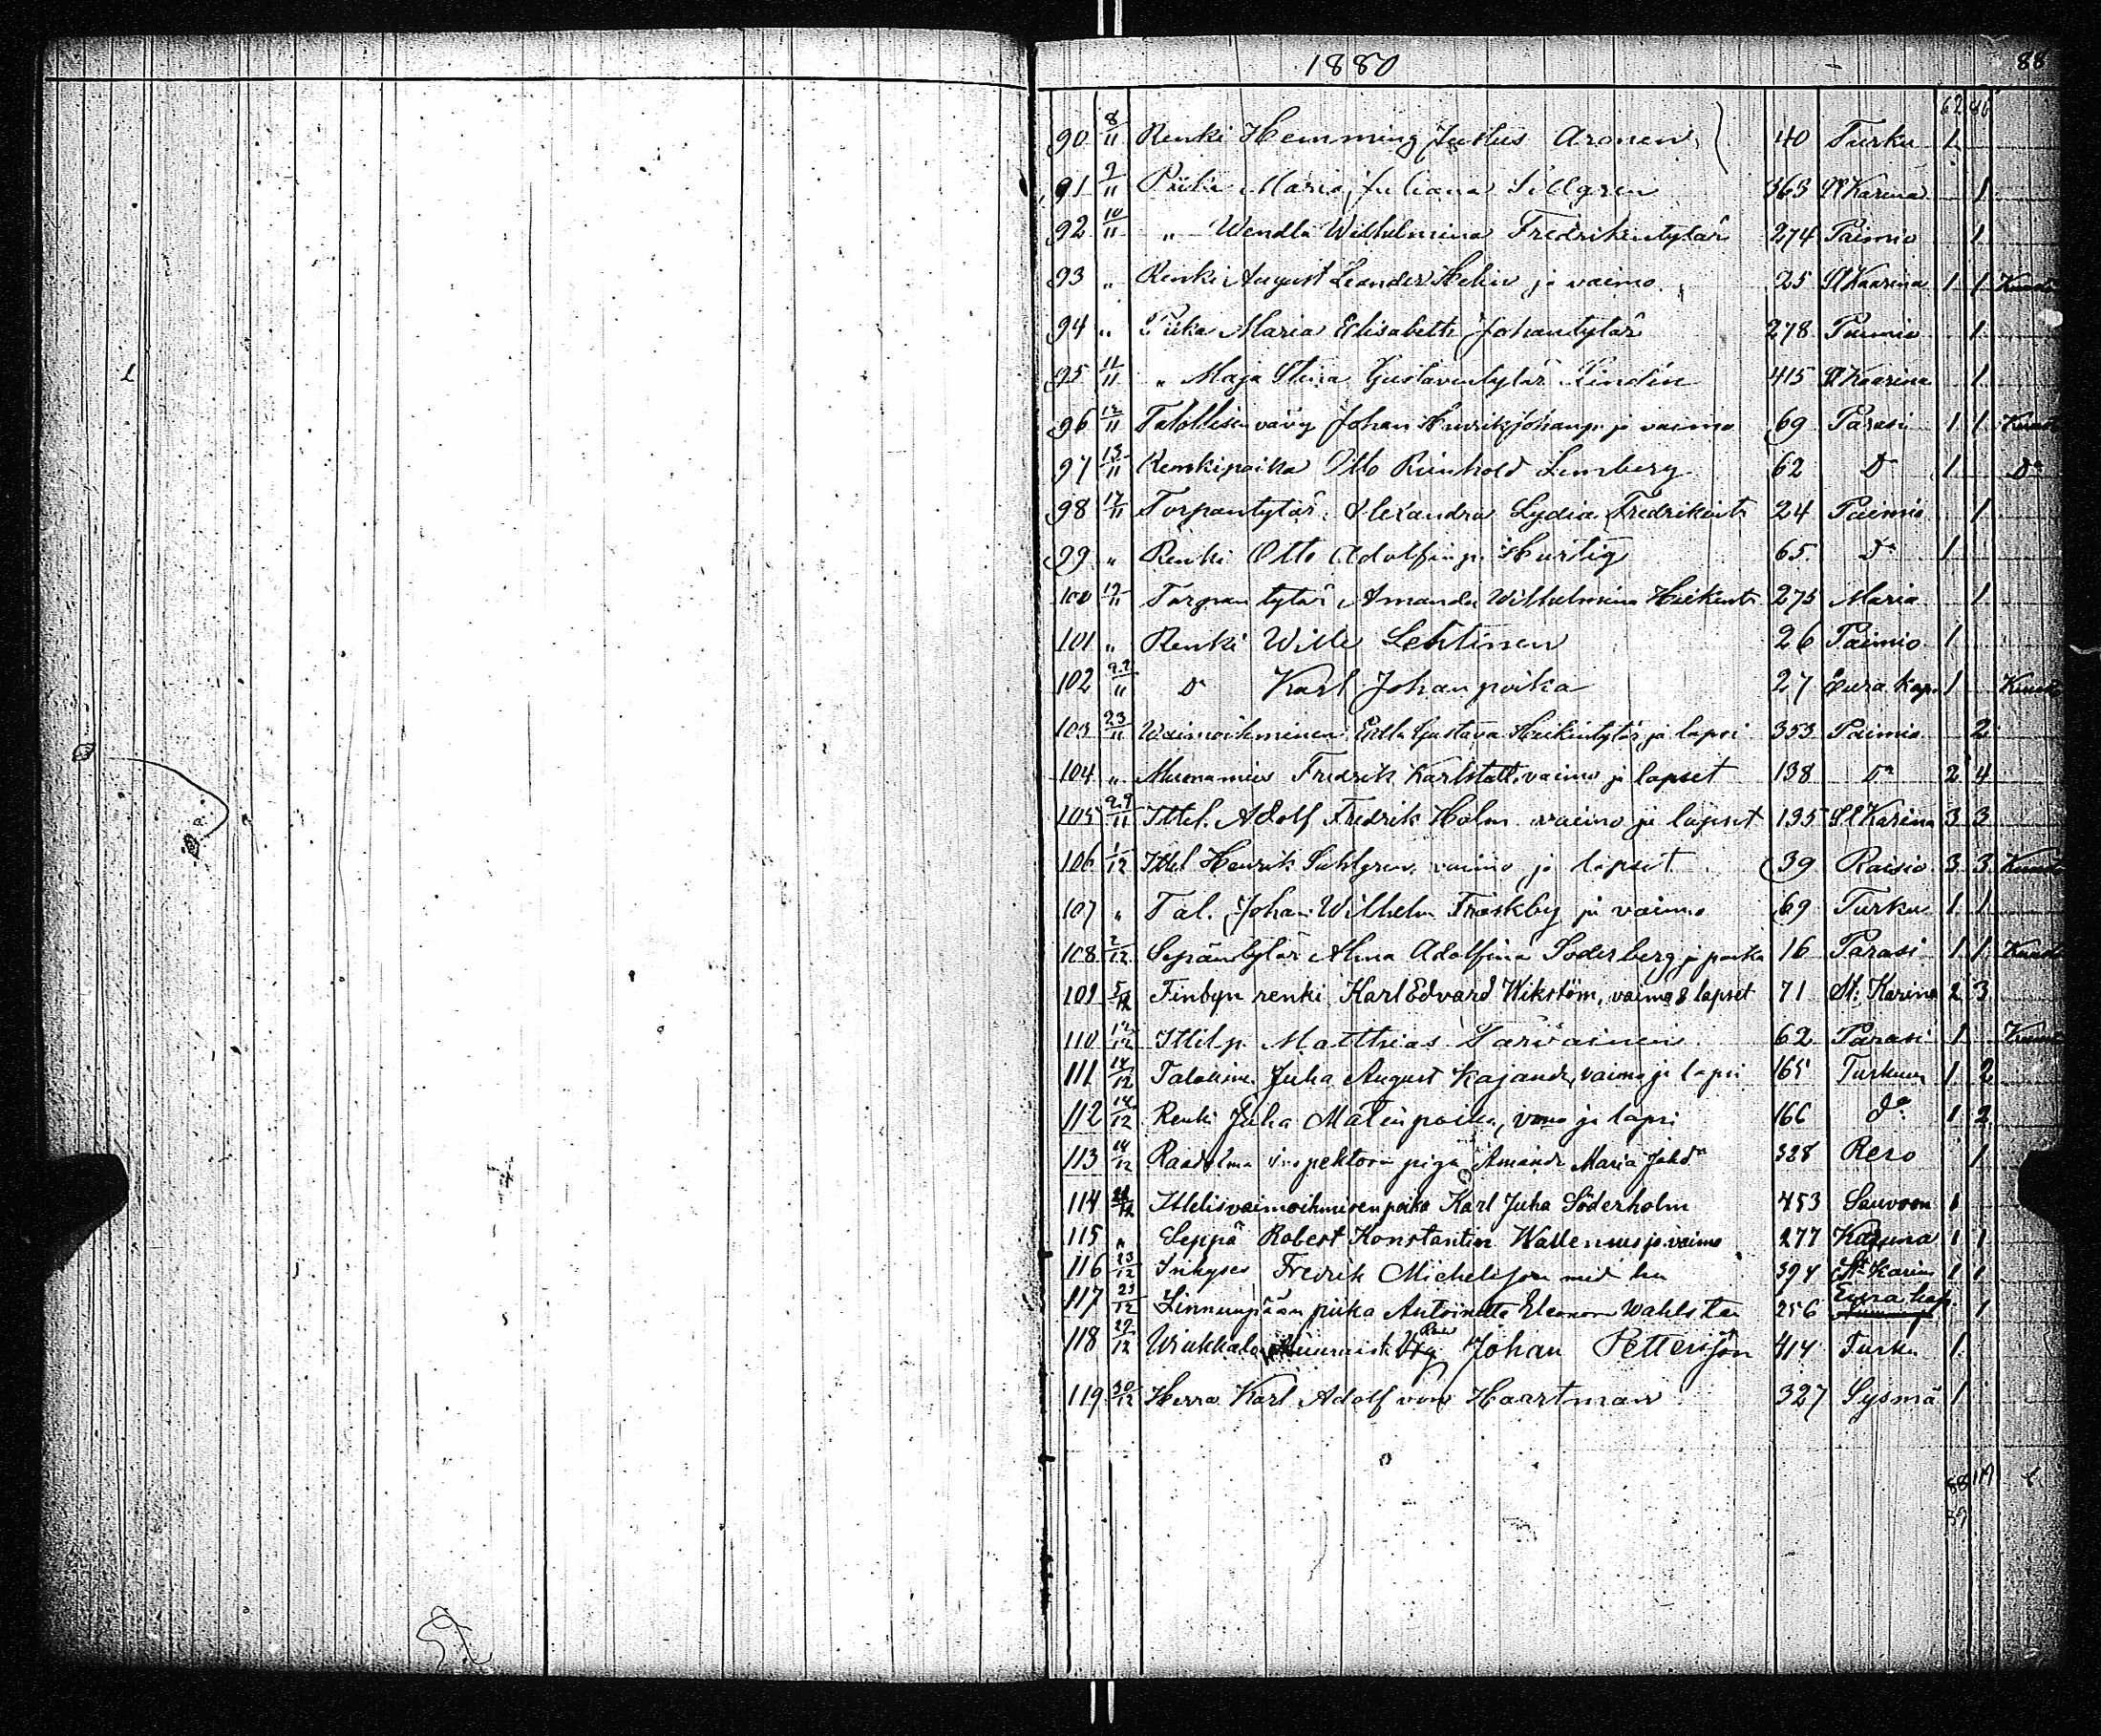 1880 88
62 46
90 8/11 Renki Hemming Justus Aronen 40 Turku 1
91 9/11 Piika Maria Juliana Sillgren 363 St Karina 1
92 10/11 " Wendla Wilhelmina Fredrikintytär 274 Paimio 1
93 " Renki August Leander Helin ja vaimo 25 St Kaarina 1 1
94 " Piika Maria Elisabeth Johantytär 278 Paimio 1
95 11/11 " Maja Stina Gustavintytär Lindén 415 St Kaarina 1
96 12/11 Talollisen vävy Johan Henrik Johanp. ja vaimo 69 Parasi 1 1
97 13/11 Renkipoika Otto Reinhold Lemberg 62 Do 1 Do
98 17/11 Torpantytär Alexandra Lydia Fredrikint. 24 Paimio 1
99 " Renki Otto Adolfinp. Hurtig 65 Do 1
100 19/11 Torpantytär Amanda Wilhelmina Heikint. 275 Maria 1
101 " Renki Wille Lehtinen 26 Paimio 1
102 22/11 Do Karl Johanpoika 27 Eura kap. 1
103 23/11 Waimoihminen Edla Gustava Heikintytär ja lapsi 353 Paimio 2
104 " Muonamies Fredrik Karlstätt, vaimo ja lapset 138 Do 2 4
105 29/11 Ittel. Adolf Fredrik Holm vaimo ja lapset 135 St Karina 3 3
106 1/12 Ittel Henrik Sahlgren, vaimo ja lapset 39 Raisio 3 3
107 " Tal. Johan Wilhelm Fraskby ja vaimo 69 Turku 1 1
108 2/12 Sepäntytär Alma Adolfina Söderberg ja poika 16 Parasi 1 1
109 5/12 Finbyn renki Karl Edvard Wikstöm, vaimo & lapset 71 St: Karina 2 3
110 12/12 Ittel p. Matthias Tarvainen 62 Parasi 1
111 14/12 Juha August Kajander, vaimo ja lapsi 165 Turkuun 1 2
112 14/12 Renki Juha Matinpoika, vaimo ja lapsi 166 do 1 2
113 14/12 inspektorn piga Amanda Maria Johdr 328 Reso 1
114 /12 Ittelisvaimoihmisenpoika Karl Juha Söderholm 453 Sauvoon 1
115 " Seppä Robert Konstantin Wallenius ja vaimo 277 Karuna 1 1
116 23/12 Inhyses Fredrik Michelsson med hu 394 St Karins 1 1
117 23/12 Linnunpään piika Antoinetta Eleonora Wahlsten 256 Eura kap. 1
118 29/12 Johan Pettersson 414 Turku 1
119 30/12 Herra Karl Adolf von Haartman 327 Sysmä 1